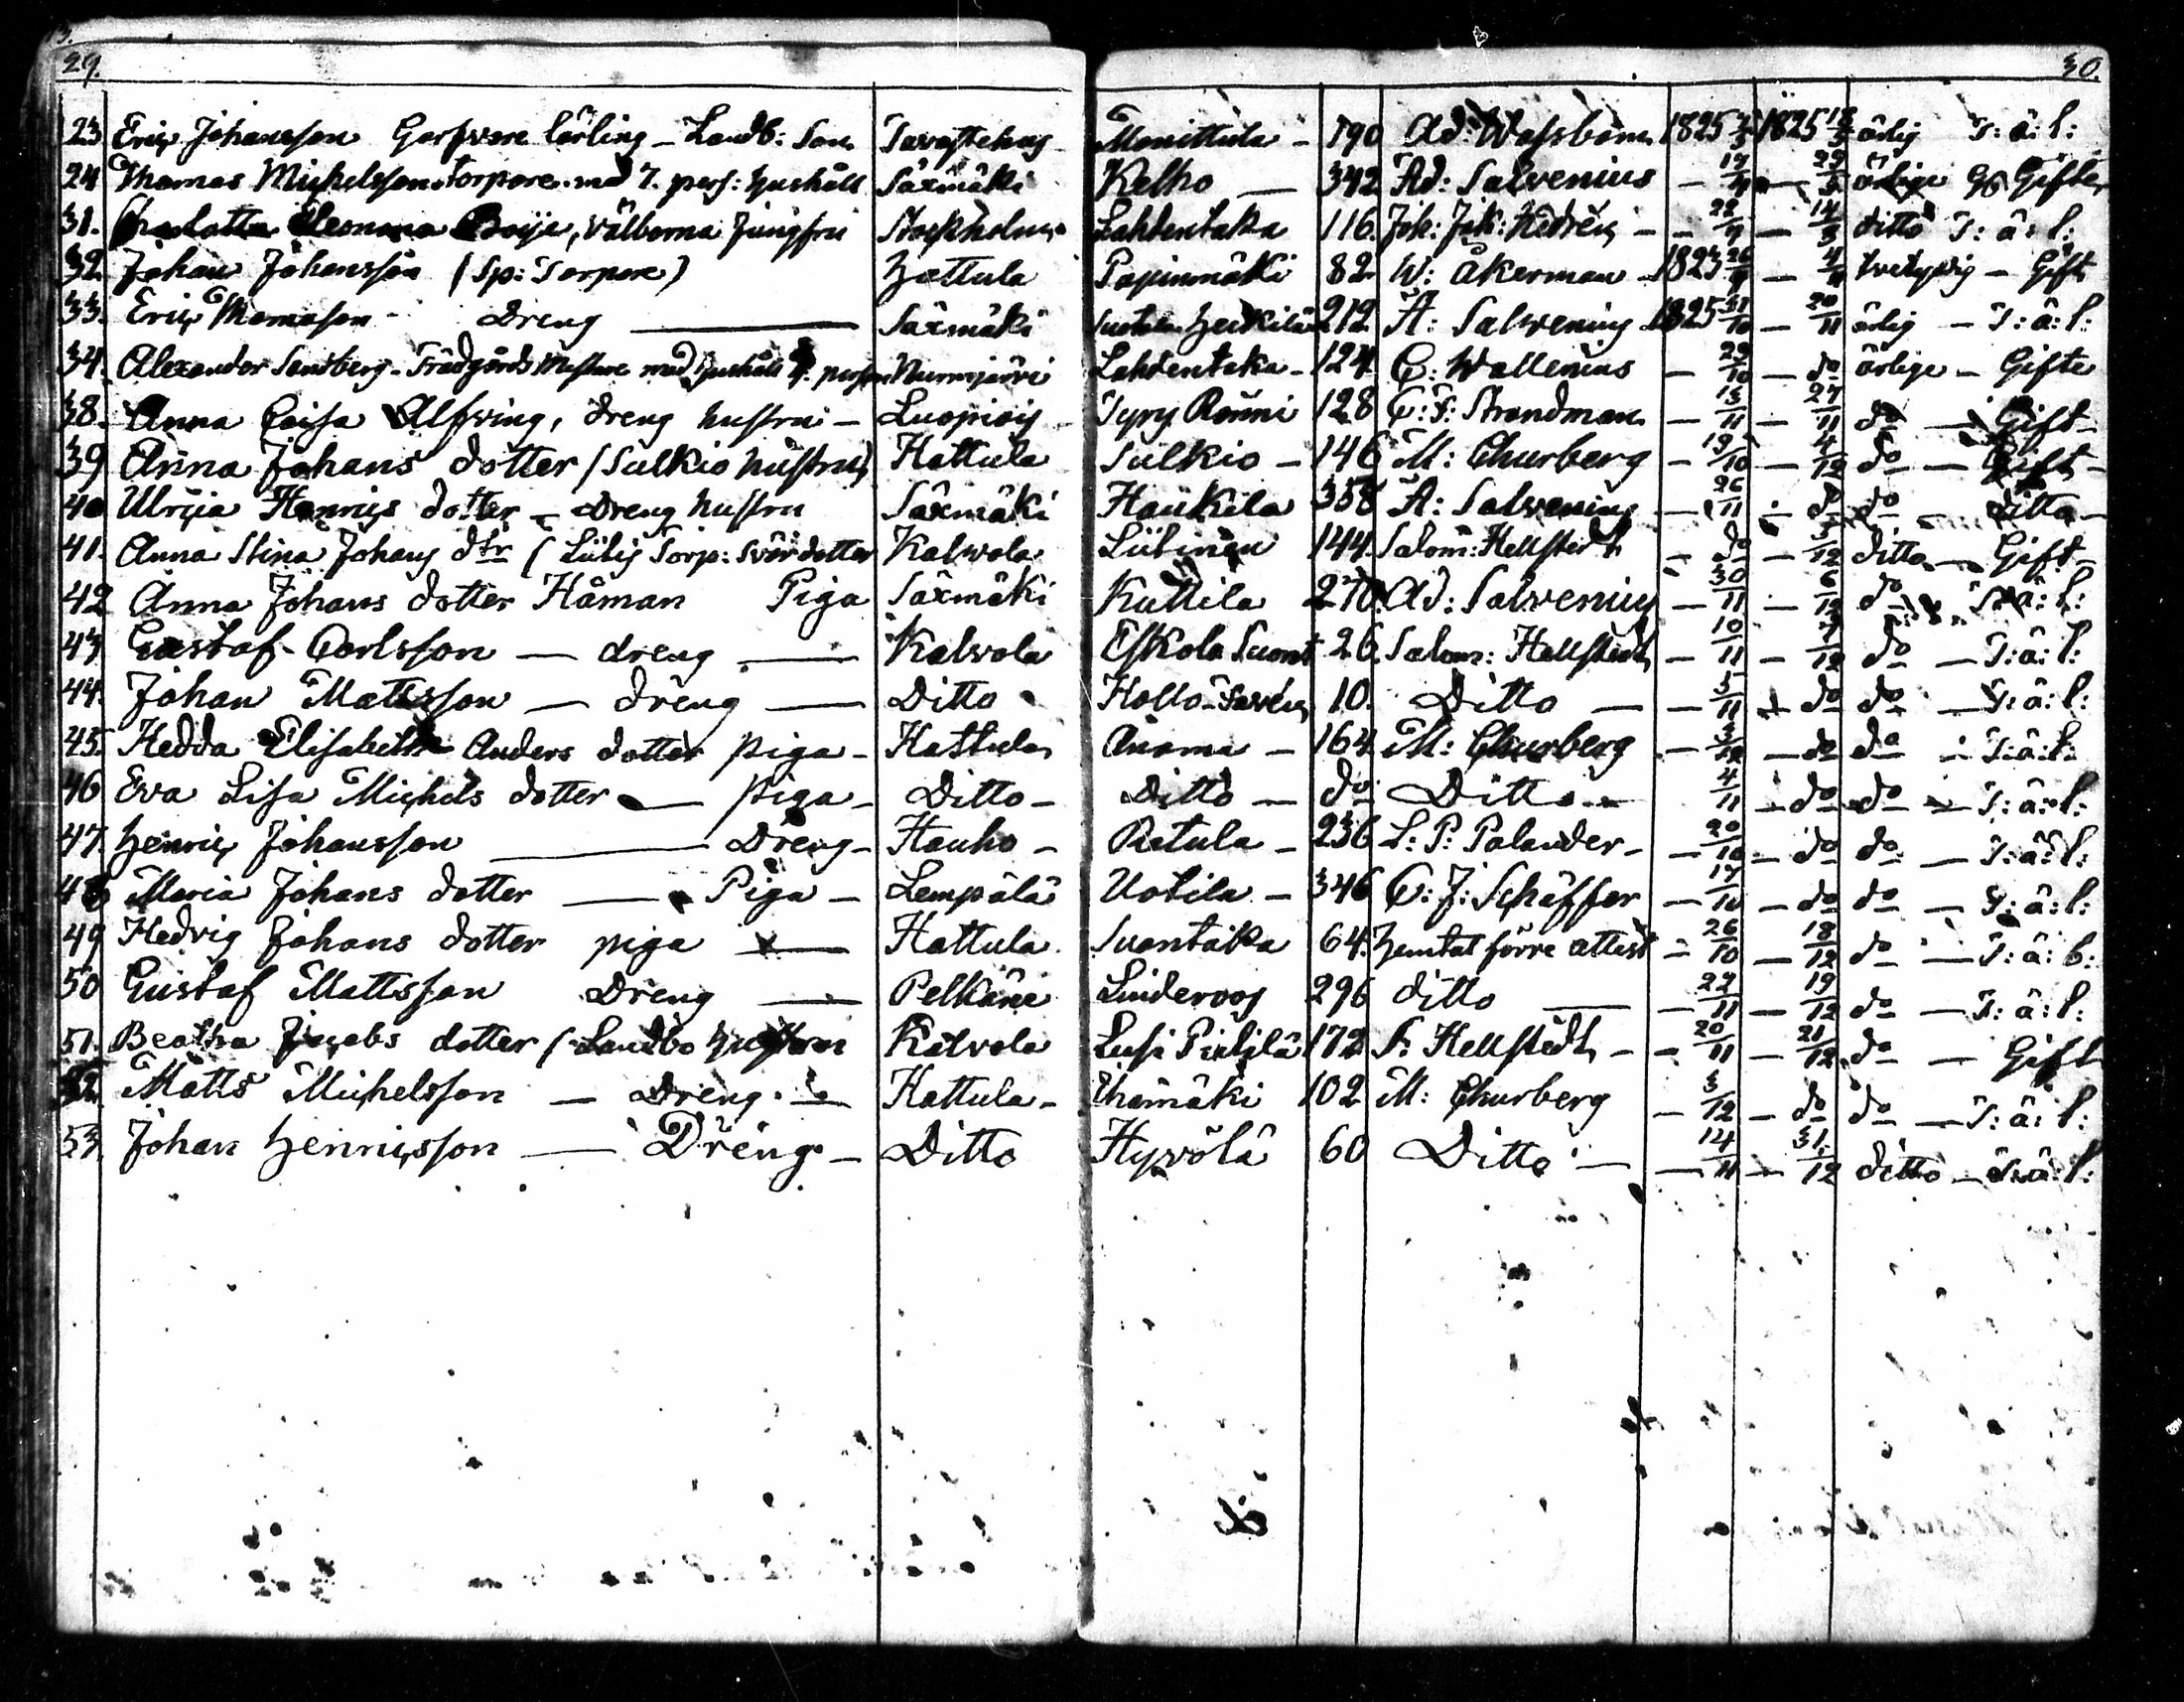 29. 30.
23. Eric Johansson Garfware lärling – Landb: Son Tavastehus Monittula – 190 Ad: Wassbom 1825 1825 18/3 ärlig T: ä: l:
24 Thomas Michelsson Torpare med 7. pers: hushåll Säxmäki Kelho — 342 Ad: Salvenius – ärlige Gifte
31. Charlotta Eleonora Boije, Välborna Jungfru Stockholm Lahdentaka 116. Joh: Jak: Hedrén – – ditto T: ä: l:
32. Johan Johansson (Sp: Torpare) Hattula Papinmäki 82 W: Åkerman – 1823 – tvetydig – Gift
33. Eric Thomasson – Dreng — Säxmäki Suotala Heikkilä 212 A: Salvenius 1825 31/10 – 20/11 ärlig – T: ä: l:
34. Alexander Sandberg – Trädgårds Mästare med hushåll 4. person Nurmijärvi Lahdentaka – 124. C: Wallenius – 29/10 – do ärlige – Gifte
38. Anna Caisa Alfving, dreng hustru – Luopiois Syry Ronni 128 C: F: Strandman – 13/11 – 27/11 do – Gift
39 Anna Johans dotter (Sulkio hustru) Hattula Sulkio – 146 M: Churberg – 19/10 – 4/12 do – Gift –
40 Ulrica Henrics dotter – Dreng hustru Säxmäki Haukila 358 A: Salvenius – 26/11 – do do – ditto –
41. Anna Stina Johans dtr (Liibis Torp: Svärdotter Kalvola Liibinen 144. Salom: Hellstedt – do – 5/12 ditto – Gift –
42 Anna Johans dotter Håman Piga Säxmäki Kuttila 270. Ad: Salvenius – 30/11 – 6/12 do T: ä: l:
43 Gustaf Carlsson — dreng — Kalvola Eskola Suont 26. Salom: Hellstedt – 10/11 – 7/12 do – T: ä: l:
44. Johan Mattsson — dreng — Ditto Hollo 10. Ditto — – 5/11 – do do – T: ä: l:
45. Hedda Elisabeth Anders dotter piga – Hattula Anoma – 164 M: Churberg – – do do – T: ä: l:
46 Eva Lisa Michels dotter — piga – Ditto – Ditto – do Ditto – 4/11 – do do – T: ä: l:
47. Henric Johansson — Dreng – Hauho – Ratula – 236 L: P: Palander – – 20/10 – do do – T: ä: l:
48 Maria Johans dotter — Piga – Lempälä Uotila – 346 C: J: Schäffer – 17/10 – do do – T: ä: l:
49 Hedvig Johans dotter piga — Hattula Suontaka 64. hemtat förre attest – 26/10 – 18/12 do – T: ä: b:
50 Gustaf Mattsson Dreng — Pelkäne Linderoos 296 ditto — – 22/11 – 19/12 do – T: ä: l:
51. Beatha Jacobs dotter (Landbo hustru Kalvola Lusi Pietilä 172 S: Hellstedt – – 20/11 – 21/12 do – Gift
52. Matts Michelsson – Dreng – Hattula – Ihamäki 102 M: Churberg – 3/12 – do do – T: ä: l:
53. Johan Henricsson — Dreng – Ditto Hyvölä 60 Ditto – – 14/11 – 31/12 ditto – T: ä: l: